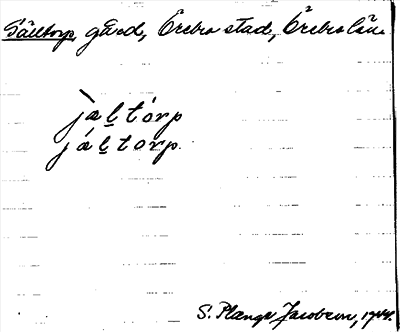 Sälltorp, gård, Örebro stad, Örebro län.
jàl̲tórp
jál̲torp.
S. Plange Jacobson, 1944.